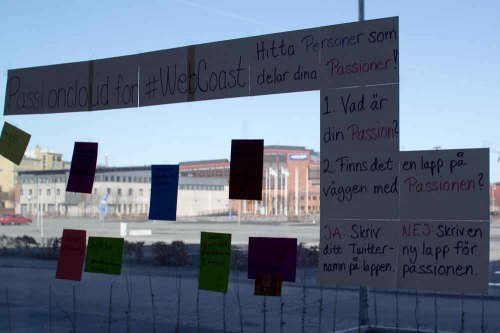 Passioncloud for #WebCoast
Hitta Personer som
delar dina Passioner!
1. Vad är
din Passion?
2. Finns det en lapp på
väggen med Passionen?
JA Skriv
ditt Twitter-
namn på lappen.
NEJ Skriv en
ny lapp för
passionen.